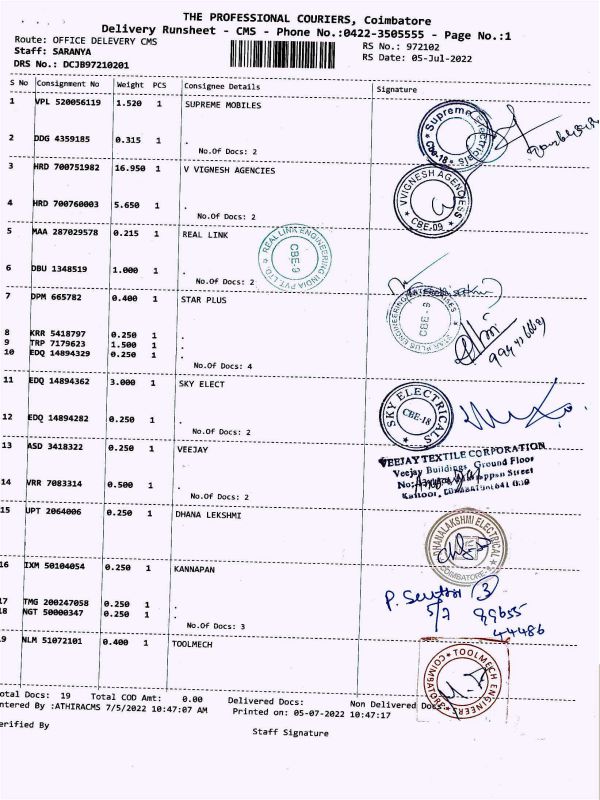 THE PROFESSIONAL COURIERS, Coimbatore
Delivery Runsheet - CMS - Phone No.:0422-3505555 - Page No.:1
Route: OFFICE DELEVERY CMS
RS No.: 972102
Staff: SARANYA
RS Date: 05-Jul-2022
DRS No.: DCJB97210201
S No Consignment No Weight PCS Consignee Details Signature
1 VPL 520056119 1.520 1 SUPREME MOBILES
Supreme Electricals CBE-18
2 DDG 4359185 0.315 1 .
No.Of Docs: 2
3 HRD 700751982 16.950 1 V VIGNESH AGENCIES
VVIGNESH AGENCIES CBE-09
4 HRD 700760003 5.650 1 .
No.Of Docs: 2
5 MAA 287029578 0.215 1 REAL LINK
REAL LINK ENGINEERING INDIA PVT LTD CBE-9
6 DBU 1348519 1.000 1 .
No.Of Docs: 2
7 DPM 665782 0.400 1 STAR PLUS
STAR PLUS ENGINEERING
8 KRR 5418797 0.250 1 .
9 TRP 7179623 1.500 1 .
10 EDQ 14894329 0.250 1 .
No.Of Docs: 4
11 EDQ 14894362 3.000 1 SKY ELECT
SKY ELECTRICALS CBE-18
12 EDQ 14894282 0.250 1 .
No.Of Docs: 2
13 ASD 3418322 0.250 1 VEEJAY
VEEJAY TEXTILE CORPORATION
Veejay Buildings, Ground Floor
Street
14 VRR 7083314 0.500 1 .
No.Of Docs: 2
15 UPT 2064006 0.250 1 DHANA LEKSHMI
DHANALAKSHMI ELECTRICAL COIMBATORE
16 IXM 50104054 0.250 1 KANNAPAN
17 TMG 200247058 0.250 1 .
18 NGT 50000347 0.250 1 .
No.Of Docs: 3
P. Senthil 3
5/7 99655
44486
19 NLM 51072101 0.400 1 TOOLMECH
TOOLMECH ENGINEERS COIMBATORE
Total Docs: 19 Total COD Amt: 0.00 Delivered Docs: Non Delivered Docs:
Entered By :ATHIRACMS 7/5/2022 10:47:07 AM Printed on: 05-07-2022 10:47:17
Verified By
Staff Signature